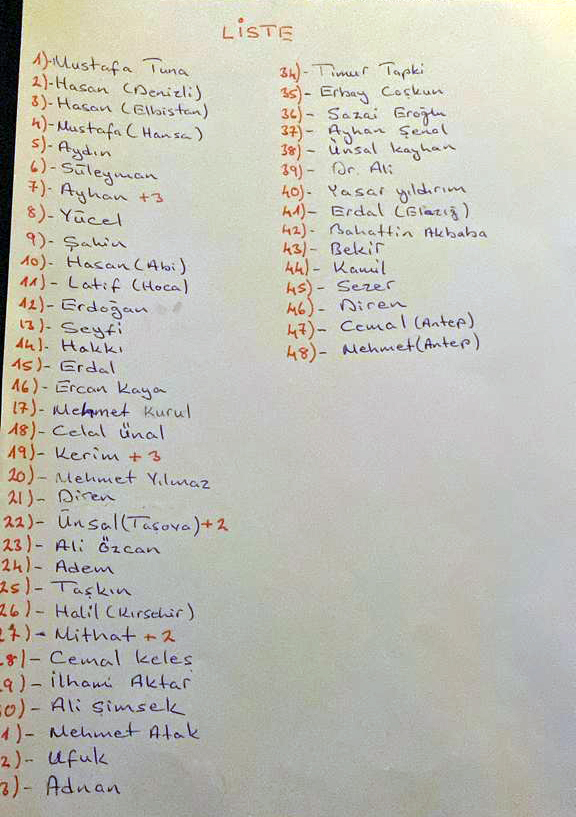 LİSTE
1)- Mustafa Tuna
2)- Hasan (Denizli)
3)- Hasan (Elbistan)
4)- Mustafa (Hansa)
5)- Aydın
6)- Süleyman
7)- Ayhan +3
8)- Yücel
9)- Şahin
10)- Hasan (Abi)
11)- Latif (Hoca)
12)- Erdoğan
13)- Seyfi
14)- Hakkı
15)- Erdal
16)- Ercan Kaya
17)- Mehmet Kurul
18)- Celal Ünal
19)- Kerim +3
20)- Mehmet Yılmaz
21)- Diren
22)- Ünsal (Taşova) +2
23)- Ali Özcan
24)- Adem
25)- Taşkın
26)- Halil (Kırşehir)
27)- Mithat +2
8)- Cemal Keleş
9)- İlhami Aktar
0)- Ali Şimşek
1)- Mehmet Atak
2)- Ufuk
3)- Adnan
34)- Timur Tapki
35)- Erbay Coşkun
36)- Sazai Eroğlu
37)- Ayhan Şenol
38)- Ünsal Kayhan
39)- Dr. Ali
40)- Yasar yıldırım
41)- Erdal (Elazığ)
42)- Bahattin Akbaba
43)- Bekir
44)- Kamil
45)- Sezer
46)- Diren
47)- Cemal (Antep)
48)- Mehmet (Antep)